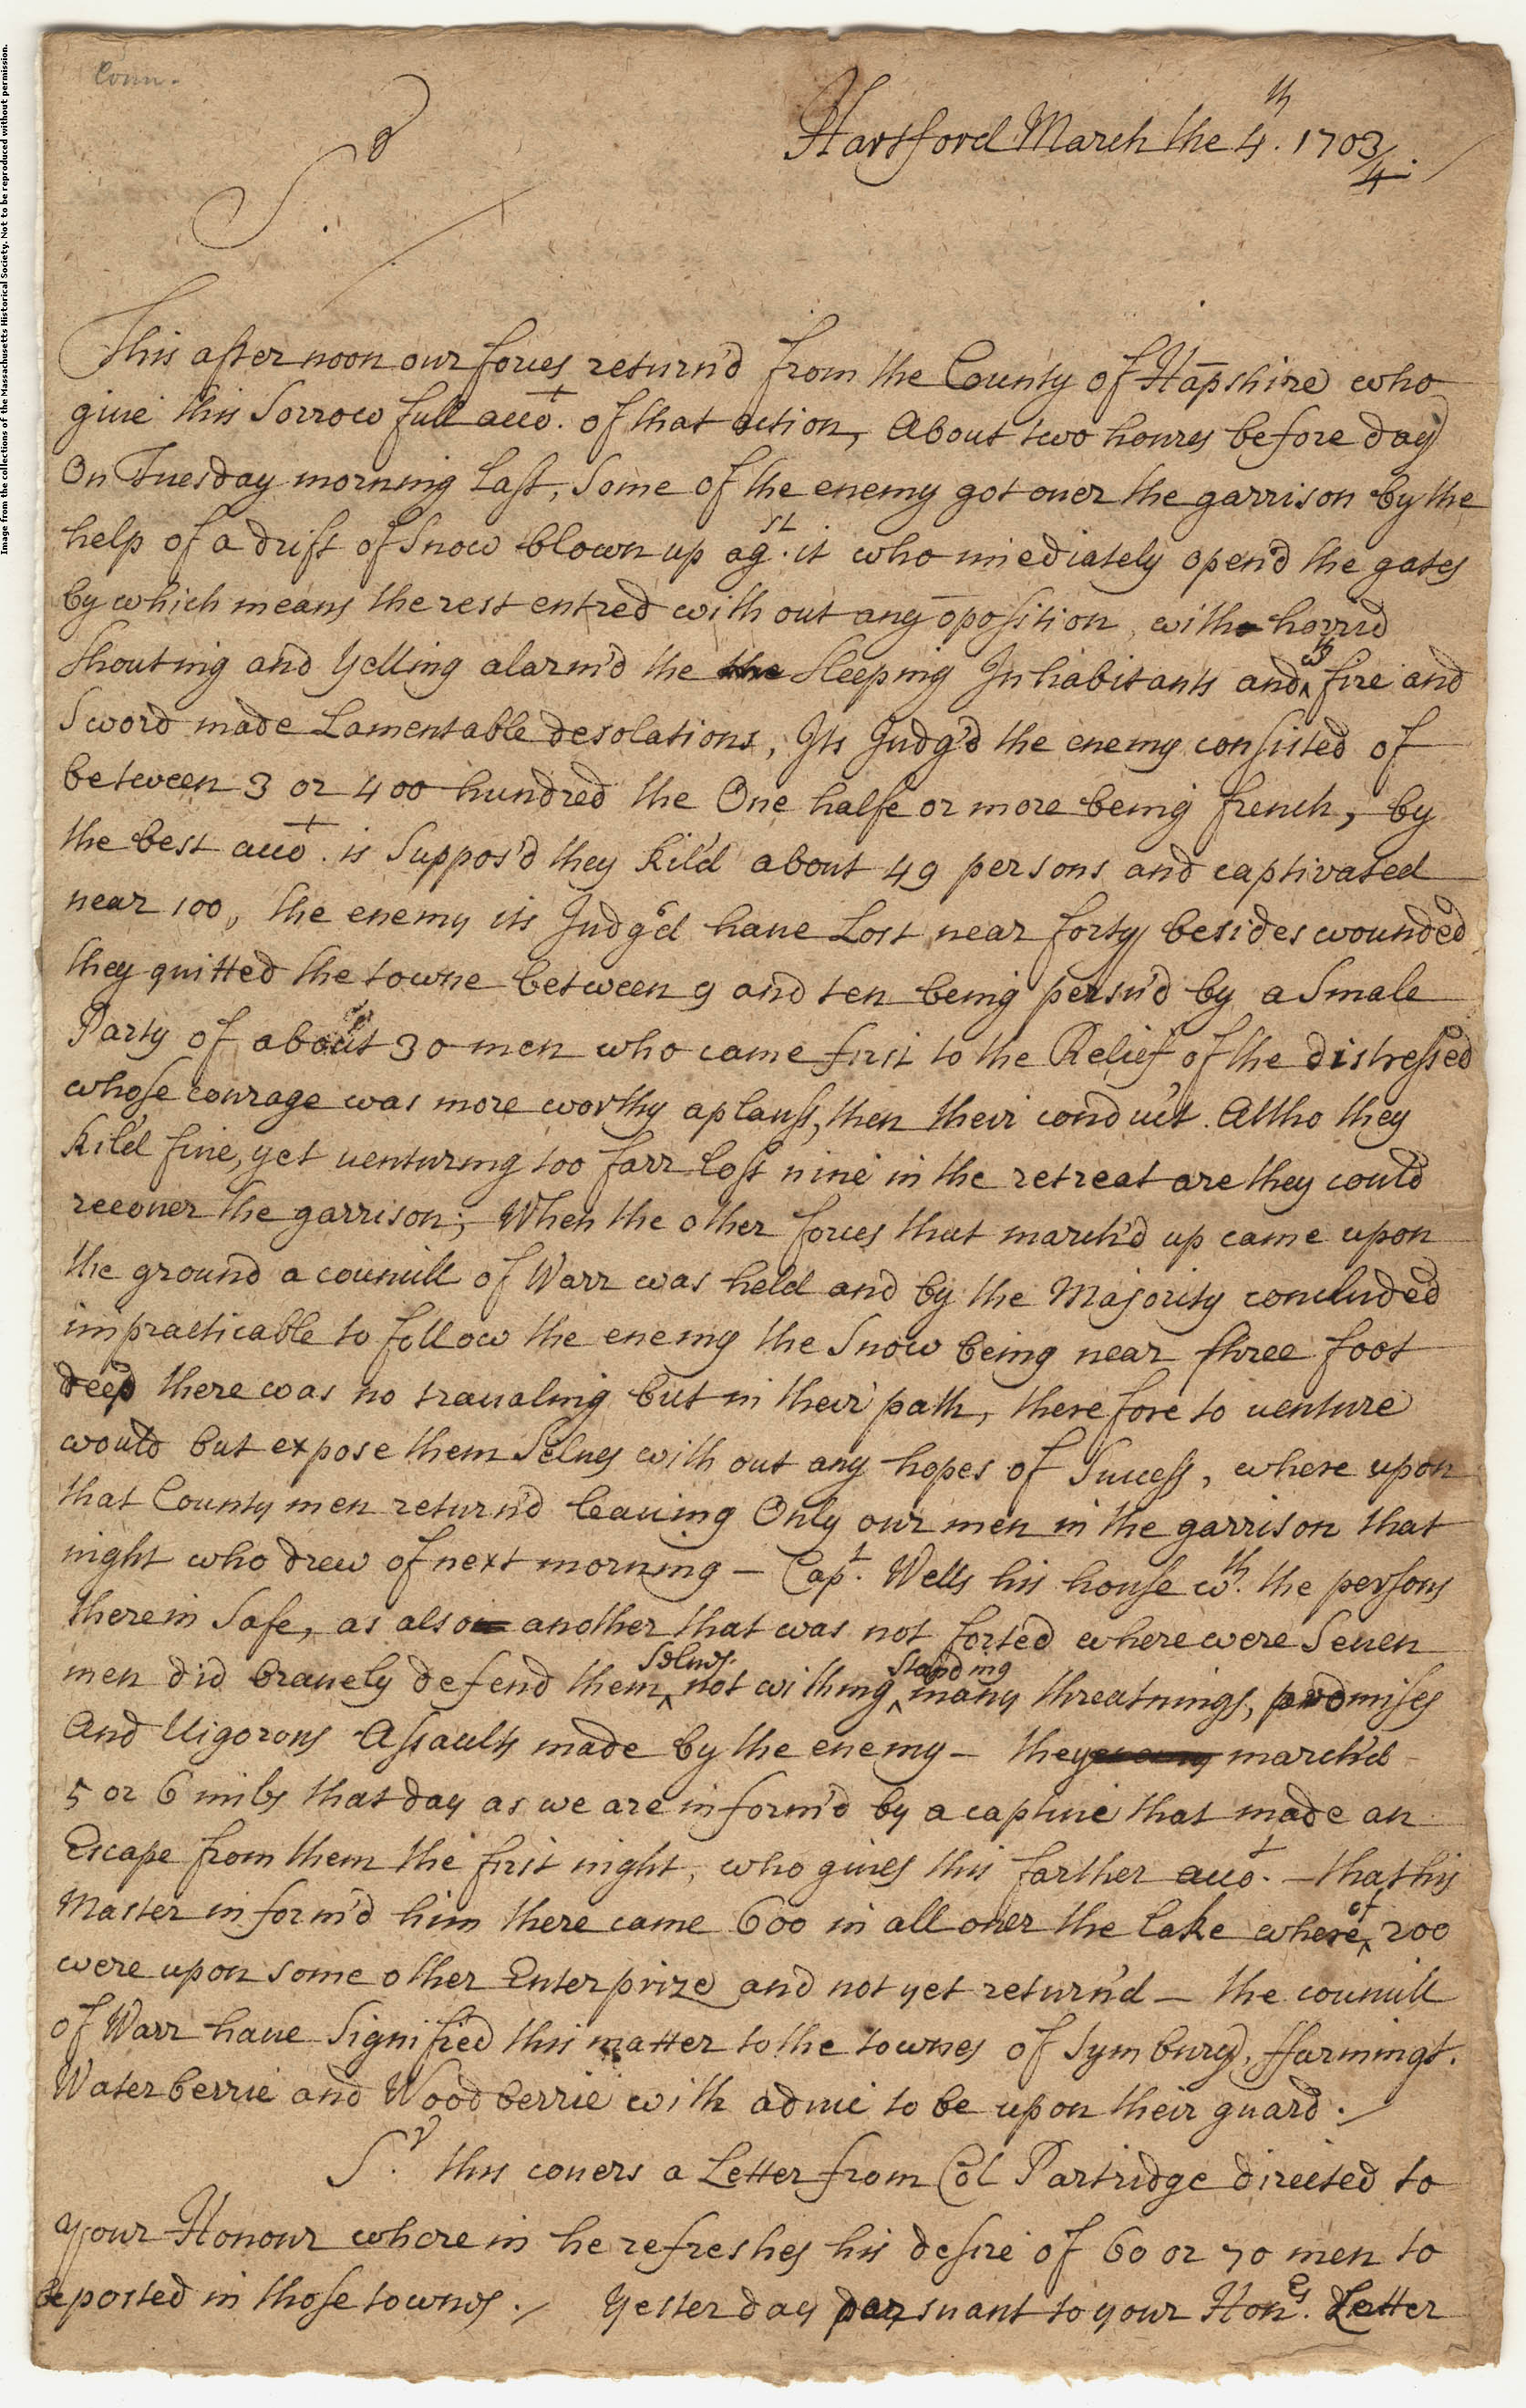 Image from the collections of the Massachusetts Historical Society. Not to be reproduced without permission.
Conn.
Hartford March the 4th. 1703/4.
Sr.
This after noon our forces return'd from the County of Hāpshire who
give this Sorrow full accot. of that action, About two houres before day
On Tuesday morning last, Some of the enemy got over the garrison by the
help of a drift of Snow blown up agst. it who imediately open'd the gates
by which means the rest entred with out any oposition, with horrid
Shouting and Yelling alarm'd the the Sleeping Inhabitants and wth fire and
Sword made Lamentable desolations, Its Judg'd the enemy consisted of
between 3 or 400 hundred the One halfe or more being french, by
the best accot. is Suppos'd they kil'd about 49 persons and captivated
near 100, the enemy its Judg'd have Lost near forty besides wounded
they quitted the towne between 9 and ten being persu'd by a Smale
Party of about 30 men who came first to the Relief of the distressed
whose courage was more worthy aplauss, then their conduct. Altho they
kil'd five, yet venturing too farr lost nine in the retreat are they could
recover the garrison; When the other forces that march'd up came upon
the ground a councill of Warr was held and by the Majority concluded
impracticable to follow the enemy the Snow being near three foot
deep there was no travaling but in their path, therefore to venture
would but expose them Selves with out any hopes of Success, where upon
that County men return'd leaving Only our men in the garrison that
night who drew of next morning – Capt. Wells his house wth. the persons
therein Safe, as also another that was not forted where were Seven
men did bravely defend them Selves not withing standing many threatnings, promises
And Vigorous Assaults made by the enemy – they march'd
5 or 6 miles that day as we are inform'd by a captive that made an
Escape from them the first night, who gives this farther accot. – that his
Master inform'd him there came 600 in all over the lake where of 200
were upon some other Enterprize and not yet return'd – the councill
of Warr have Signified this matter to the townes of Symbury, ffarmingt.
Waterberrie and Woodberrie with advice to be upon their guard.
Sr. this covers a Letter from Col Partridge directed to
your Honour where in he refreshes his desire of 60 or 70 men to
be posted in those townes. Yesterday pursuant to your Honrs. Letter